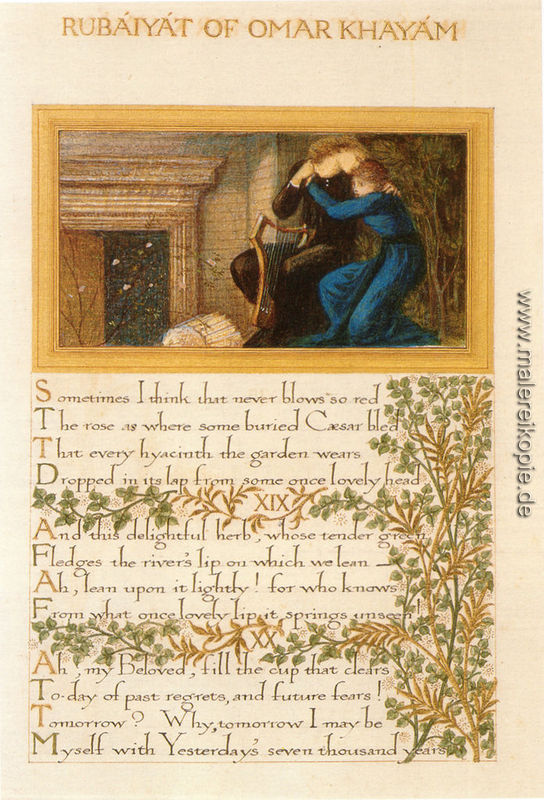 RUBÁIYÁT OF OMAR KHAYÁM
Sometimes I think that never blows so red
The rose as where some buried Cæsar bled
That every hyacinth the garden wears
Dropped in its lap from some once lovely head
XIX
And this delightful herb, whose tender green
Fledges the river's lip on which we lean —
Ah, lean upon it lightly! for who knows
From what once lovely lip it springs unseen!
XX
Ah, my Beloved, fill the cup that clears
To-day of past regrets, and future fears!
Tomorrow? Why, tomorrow I may be
Myself with Yesterday's seven thousand years
www.malereikopie.de